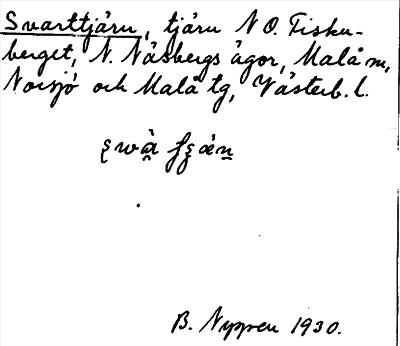 Svarttjärn, tjärn NO. Fisku-
berget, N. Näsbergs ägor, Malå m,
Norsjö och Malå tg, Västerb. l.
B. Nyppen 1930.